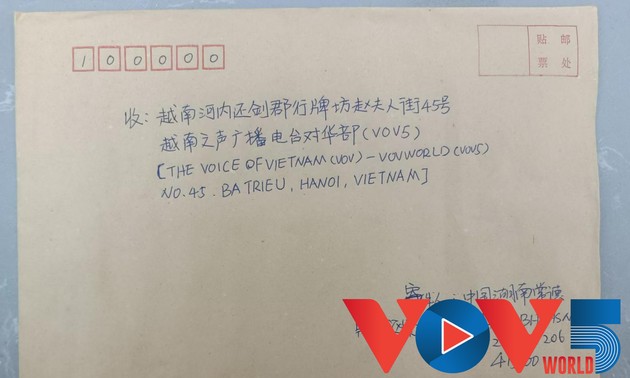 100000
贴 邮
票 处
收：越南河内还剑郡行牌坊赵夫人街45号
越南之声广播电台对华部(VOV5)
[THE VOICE OF VIETNAM(VOV)-VOVWORLD(VOV5)
NO.45.BA TRIEU, HANOI, VIETNAM]
中国湖南常德
206
VOV5
WORLD